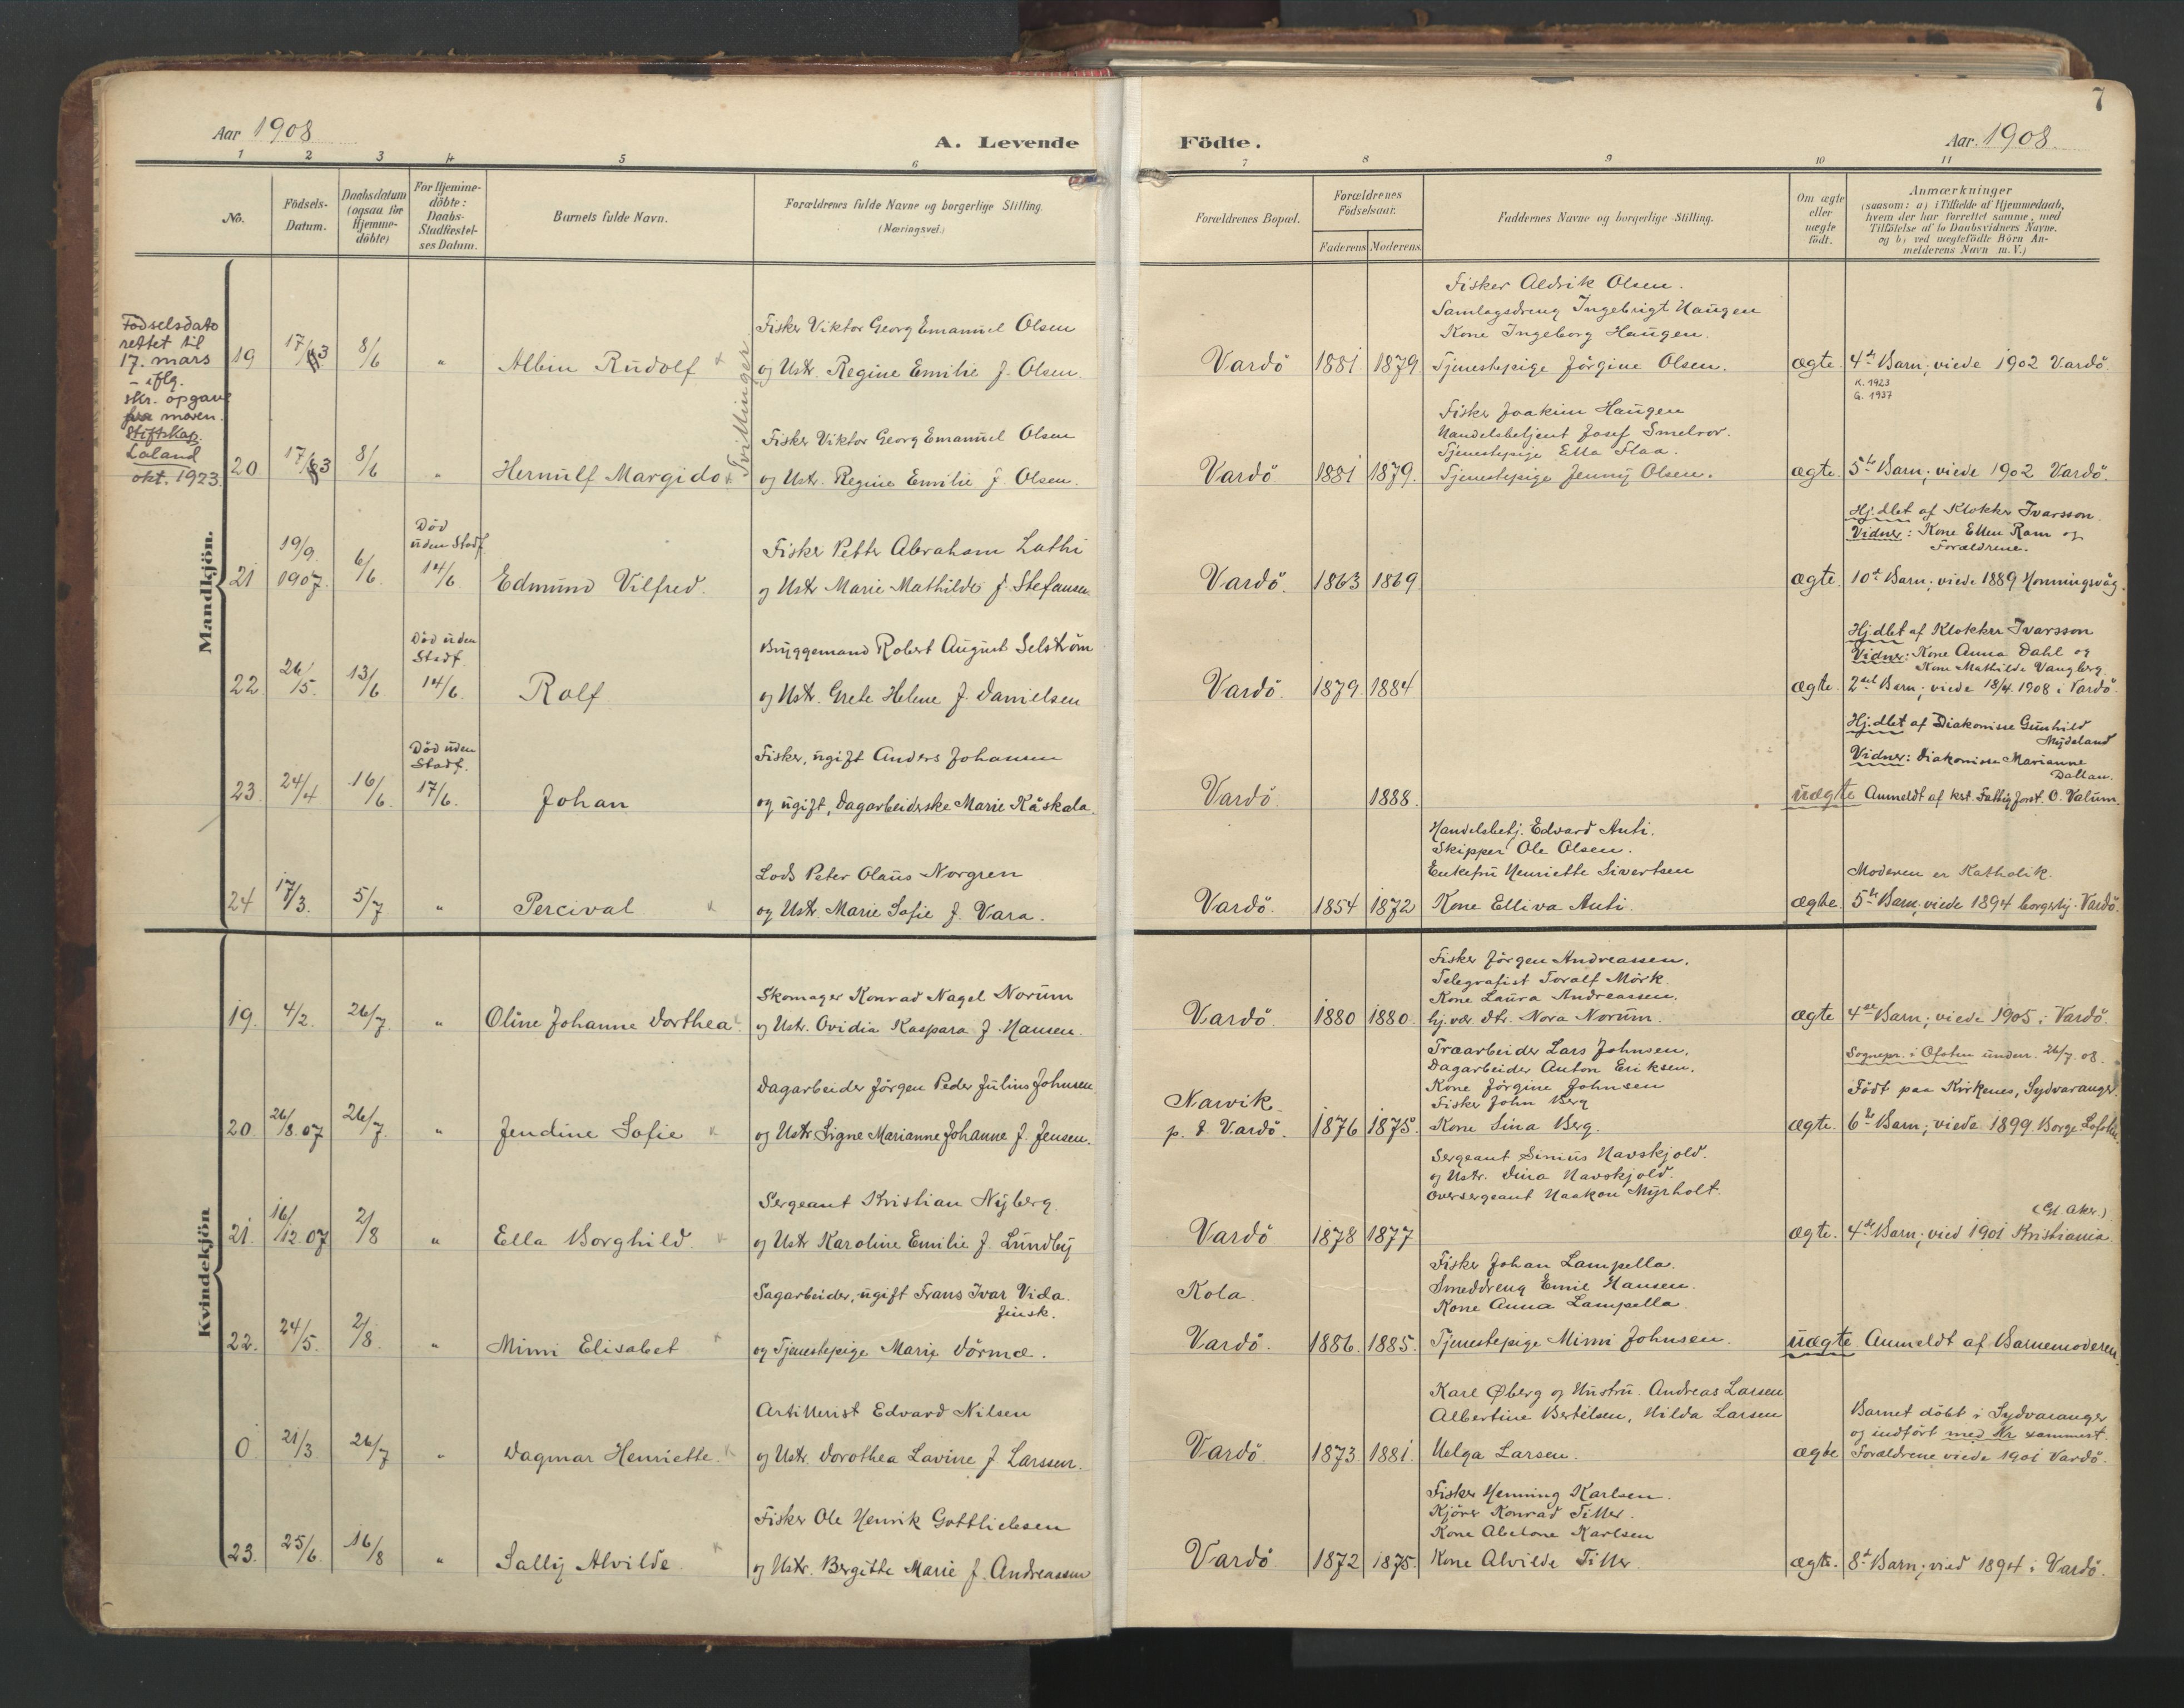 7
Aar 1908
A. Levende
Födte.
Aar 1908
1 2 3 4 5 6 7 8 9 10 11
No.
Födsels-
Datum.
Daabsdatum
(ogsaa för
Hjemme-
döbte)
For Hjemme-
döbte:
Daabs-
Stadfæstel-
ses Datum.
Barnets fulde Navn.
Forældrenes fulde Navne og borgerlige Stilling.
(Næringsvei.)
Forældrenes Bopæl.
Forældrenes
Födselsaar.
Faderens
Moderens
Faddernes Navne og borgerlige Stilling.
Om ægte
eller
uægte
födt.
Anmærkninger
(saasom: a) i Tilfælde af Hjemmedaab,
hvem der har forrettet samme, med
Tilföielse af to Daabsvidners Navne.
og b) ved uægtefödte Börn An-
melderens Navn m. V.)
Mandkjön.
Födselsdato
rettet til
17. mars
- iflg.
skr. opgave
fra moren.
Stiftskap.
Laland
okt. 1923
Tvillinger
19 17/3 8/6 " Albin Rudolf
Fisker Viktor Georg Emanuel Olsen
og Ustr. Regine Emilie f. Olsen.
Vardö 1881 1879
Fisker Aldrik Olsen.
Samlagsdreng Ingebrigt Haugen
Kone Ingeborg Haugen.
Tjenestepige Jörgine Olsen.
ægte. 4de Barn; viede 1902 Vardö.
K. 1923
G. 1937
20 17/3 8/6 " Hernulf Margido
Fisker Viktor Georg Emanuel Olsen
og Ustr. Regine Emilie f. Olsen.
Vardö 1881 1879.
Fisker Joakim Haugen
Handelsbetjent Josef Smelror.
Tjenestepige Etta Flaa.
Tjenestepige Jenny Olsen.
ægte. 5te Barn; viede 1902 Vardö.
21 19/9. 1907. 6/6.
Död
uden Stadf.
14/6
Edmund Vilfred.
Fisker Petter Abraham Lathi
og Ustr Marie Mathilde f. Stefansen
Vardö. 1863 1869
ægte.
Hj.dbt af Klokker Ivarsson.
Vidner: Kone Ellen Ram og
Forældrene.
10de Barn; viede 1889 Honningsvåg.
22 26/5. 13/6
Död uden
Stadf.
14/6.
Rolf
Bryggemand Robert August Selström
og Ustr. Grete Helene f. Danielsen
Vardö. 1879. 1884
ægte.
Hj.dbt af Klokker Ivarsson
Vidner: Kone Anna Dahl og
Kone Mathilde Vangberg
2det Barn; viede 18/4. 1908 i Vardö.
23 24/4 16/6.
Död uden
Stadf.
17/6.
Johan
Fisker, ugift Anders Johansen
og ugift, Dagarbeiderske Marie Kåskala.
Vardö. 1888.
uægte
Hj.dbt af Diakonisse Gunhild
Mydeland
Vidner: Diakonisse Marianne
Dallan.
Anmeldt af kst. Fattigforst. O. Valum.
24 17/3. 5/7 " Percival
Lods Peter Olaus Norgren
og Ustr. Marie Sofie f. Vara.
Vardö. 1854 1872
Handelsbetj. Edvard Anti.
Skipper Ole Olsen.
Enkefru Henriette Sivertsen
Kone Elliva Anti.
ægte.
Moderen er Katholik.
5te Barn; viede 1894 borgerlig. Vardö.
Kvindekjön
19. 4/2. 26/7 " Oline Johanne Dorthea
Skomager Konrad Nagel Norum
og Ustr. Ovidia Kaspara f. Hansen.
Vardö. 1880 1880.
Fisker Jörgen Andreassen.
Telegrafist Toralf Mörk.
Kone Laura Andreassen.
hj.vær. dtr. Nora Norum.
ægte 4de Barn; viede 1905 i Vardö.
20. 26/8.07 26/7. " Jendine Sofie
Dagarbeider Jörgen Peder Julius Johnsen
og Ustr Signe Marianne Johanne f. Jensen.
Narvik
p. t. Vardö. 1876 1875.
Træarbeider Lars Johnsen.
Dagarbeider Anton Eriksen.
Kone Jörgine Johnsen
Fisker John Berg
Kone Lina Berg.
ægte.
Sognepr. i Ofoten underr. 26/7.08.
Födt paa Kirkenes, Sydvaranger.
6te Barn; viede 1899. Borge. Lofoten.
21. 16/12.07 2/8 " Ella Borghild.
Sergeant Kristian Nyberg
og Ustr Karoline Emilie f. Lundby
Vardö 1878 1877
Sergeant Simus Havskjold.
og Ustr. Dina Havskjold.
Oversergeant Haakon Myrholt.
ægte.
(Gl. Aker.)
4de Barn; vied 1901 Kristiania.
22. 24/5. 2/8. " Mimi Elisabet
Sagarbeider, ugift Frans Ivar Vida.
finsk.
og Tjenestepige Marie Dörmæ.
Kola.
Vardö. 1886. 1885.
Fisker Johan Lampella.
Smeddreng Emil Hansen.
Kone Anna Lampella.
Tjenestepige Mimi Johnsen.
uægte Anmeldt af Barnemoderen.
0 21/3 26/7 " Dagmar Henriette.
Artillerist Edvard Nilsen
og Ustr. Dorothea Lavine f. Larssen.
Vardö 1873 1881.
Karl Øberg og Hustru. Andreas Larsen
Albertine Bertilsen, Hilda Larsen
Helga Larsen.
ægte
Barnet döbt i Sydvaranger
og indfört med Nr sammest.
Forældrene viede 1901 Vardö.
23. 25/6. 16/8 " Sally Alvilde
Fisker Ole Henrik Gottliebsen
og Ustr. Bergitte Marie f. Andreassen
Vardö 1872 1875.
Fisker Henning Karlsen.
Kjörer Konrad Tiller.
Kone Abelone Karlsen
Kone Alvilde Tiller
ægte. 8de Barn; vied 1894 i Vardö.